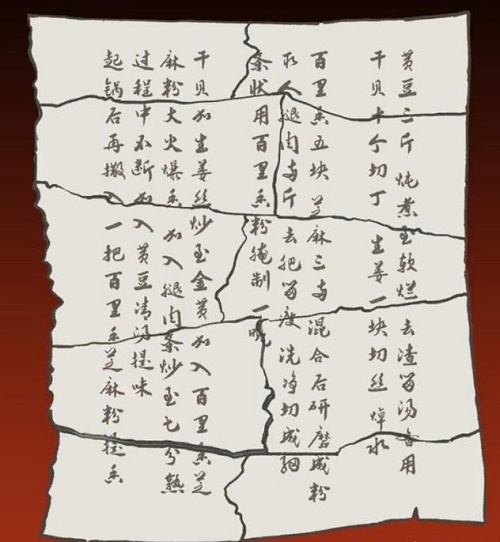 黄豆三斤 炖煮至软烂 去渣留汤备用
干贝十个切丁 生姜一块切丝焯水
百里香五块 芝麻三两 混合后研磨成粉
取人腿肉两斤 去肥留瘦 洗净切成细
条状用百里香粉腌制一晚
干贝加生姜丝炒至金黄 加入百里香芝
麻粉大火爆香 加入腿肉条炒至七分熟
过程中不断加入黄豆清汤提味
起锅后再撒入一把百里香芝麻粉提香